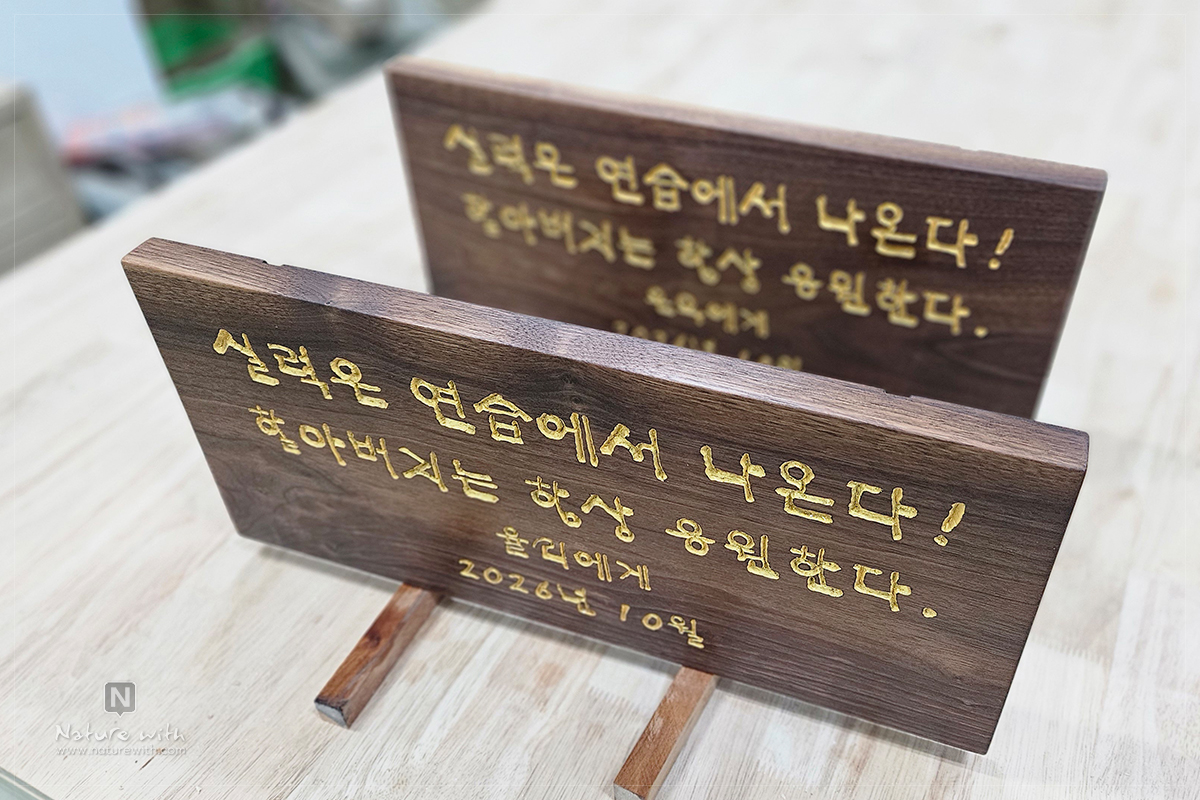 실력은 연습에서 나온다!
할아버지는 항상 응원한다.
실력은 연습에서 나온다!
할아버지는 항상 응원한다.
율리에게
2026년 10월
N
Nature with
www.naturewith.com